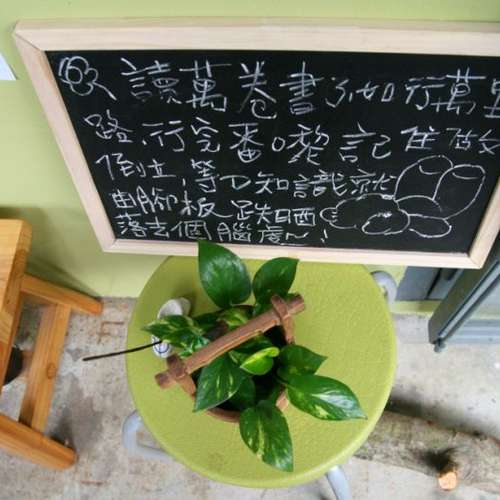 讀萬卷書不如行萬里
路,行完番嚟記住做
倒立,等D知識就
由腳板跌晒
落去個腦度~!